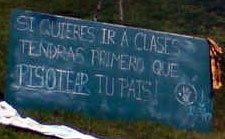 SI QUIERES IR A CLASES
TENDRAS PRIMERO QUE
PISOTEAR TU PAIS!